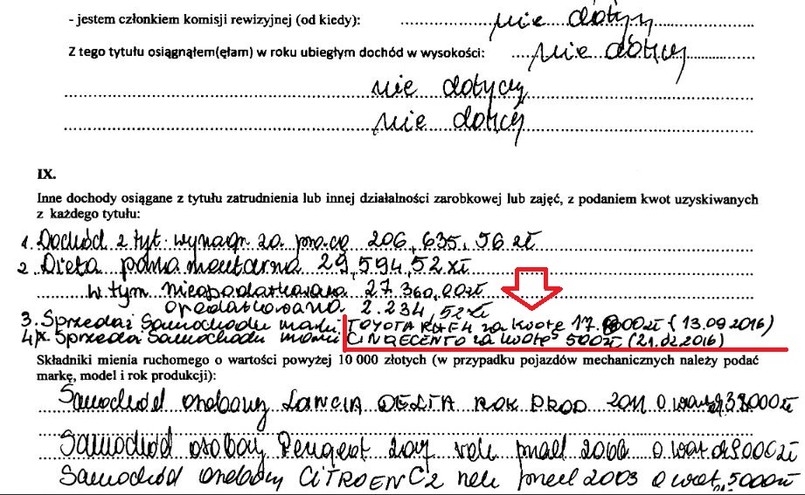 - jestem członkiem komisji rewizyjnej (od kiedy): nie dotyczy
Z tego tytułu osiągnąłem(ęłam) w roku ubiegłym dochód w wysokości: nie dotyczy
nie dotyczy
nie dotyczy
IX.
Inne dochody osiągane z tytułu zatrudnienia lub innej działalności zarobkowej lub zajęć, z podaniem kwot uzyskiwanych
z każdego tytułu:
1. Dochód z tyt. wynagr. za pracę 206,635,56 zł
2. Dieta parlamentarna 29,594,52 zł
w tym nieopodatkowana 27.360,00 zł
opodatkowana 2.234,52 zł
3. Sprzedaż samochodu marki TOYOTA RAF4 za kwotę 17.000 zł (13.09.2016)
4. Sprzedaż samochodu marki CINQECENTO za kwotę 500 zł (21.02.2016)
Składniki mienia ruchomego o wartości powyżej 10 000 złotych (w przypadku pojazdów mechanicznych należy podać
markę, model i rok produkcji):
Samochód osobowy LANCIA DELTA ROK PROD 2011 o wart. 38000 zł
Samochód osobowy Peugeot 207 rok 2006 o wart 9000 zł
Samochód osobowy CITROEN C2 2003 o wart. 5000 zł